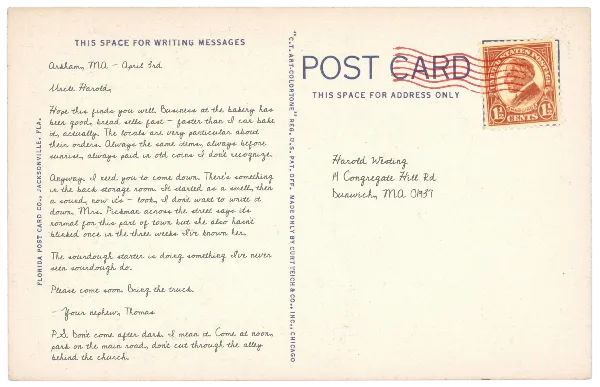 THIS SPACE FOR WRITING MESSAGES
Arkham, MA – April 3rd
Uncle Harold,
Hope this finds you well. Business at the bakery has
been good, bread sells fast – faster than I can bake
it, actually. The locals are very particular about
their orders. Always the same items, always before
sunrise, always paid in old coins I don't recognize.
Anyway. I need you to come down. There's something
in the back storage room. It started as a smell, then
a sound, now it's – look, I don't want to write it
down. Mrs. Pickman across the street says its
normal for this part of town but she also hasn't
blinked once in the three weeks I've known her.
The sourdough starter is doing something I've never
seen sourdough do.
Please come soon. Bring the truck.
– Your nephew, Thomas
P.S. Don't come after dark. I mean it. Come at noon,
park on the main road, don't cut through the alley
behind the church.
FLORIDA POST CARD CO., JACKSONVILLE, FLA.
"C.T. ART-COLORTONE" REG. U.S. PAT. OFF. MADE ONLY BY CURT TEICH & CO., INC., CHICAGO
POST CARD
THIS SPACE FOR ADDRESS ONLY
UNITED STATES POSTAGE
1½ CENTS 1½
Harold Westing
14 Congregate Hill Rd
Dunwich, MA 01937